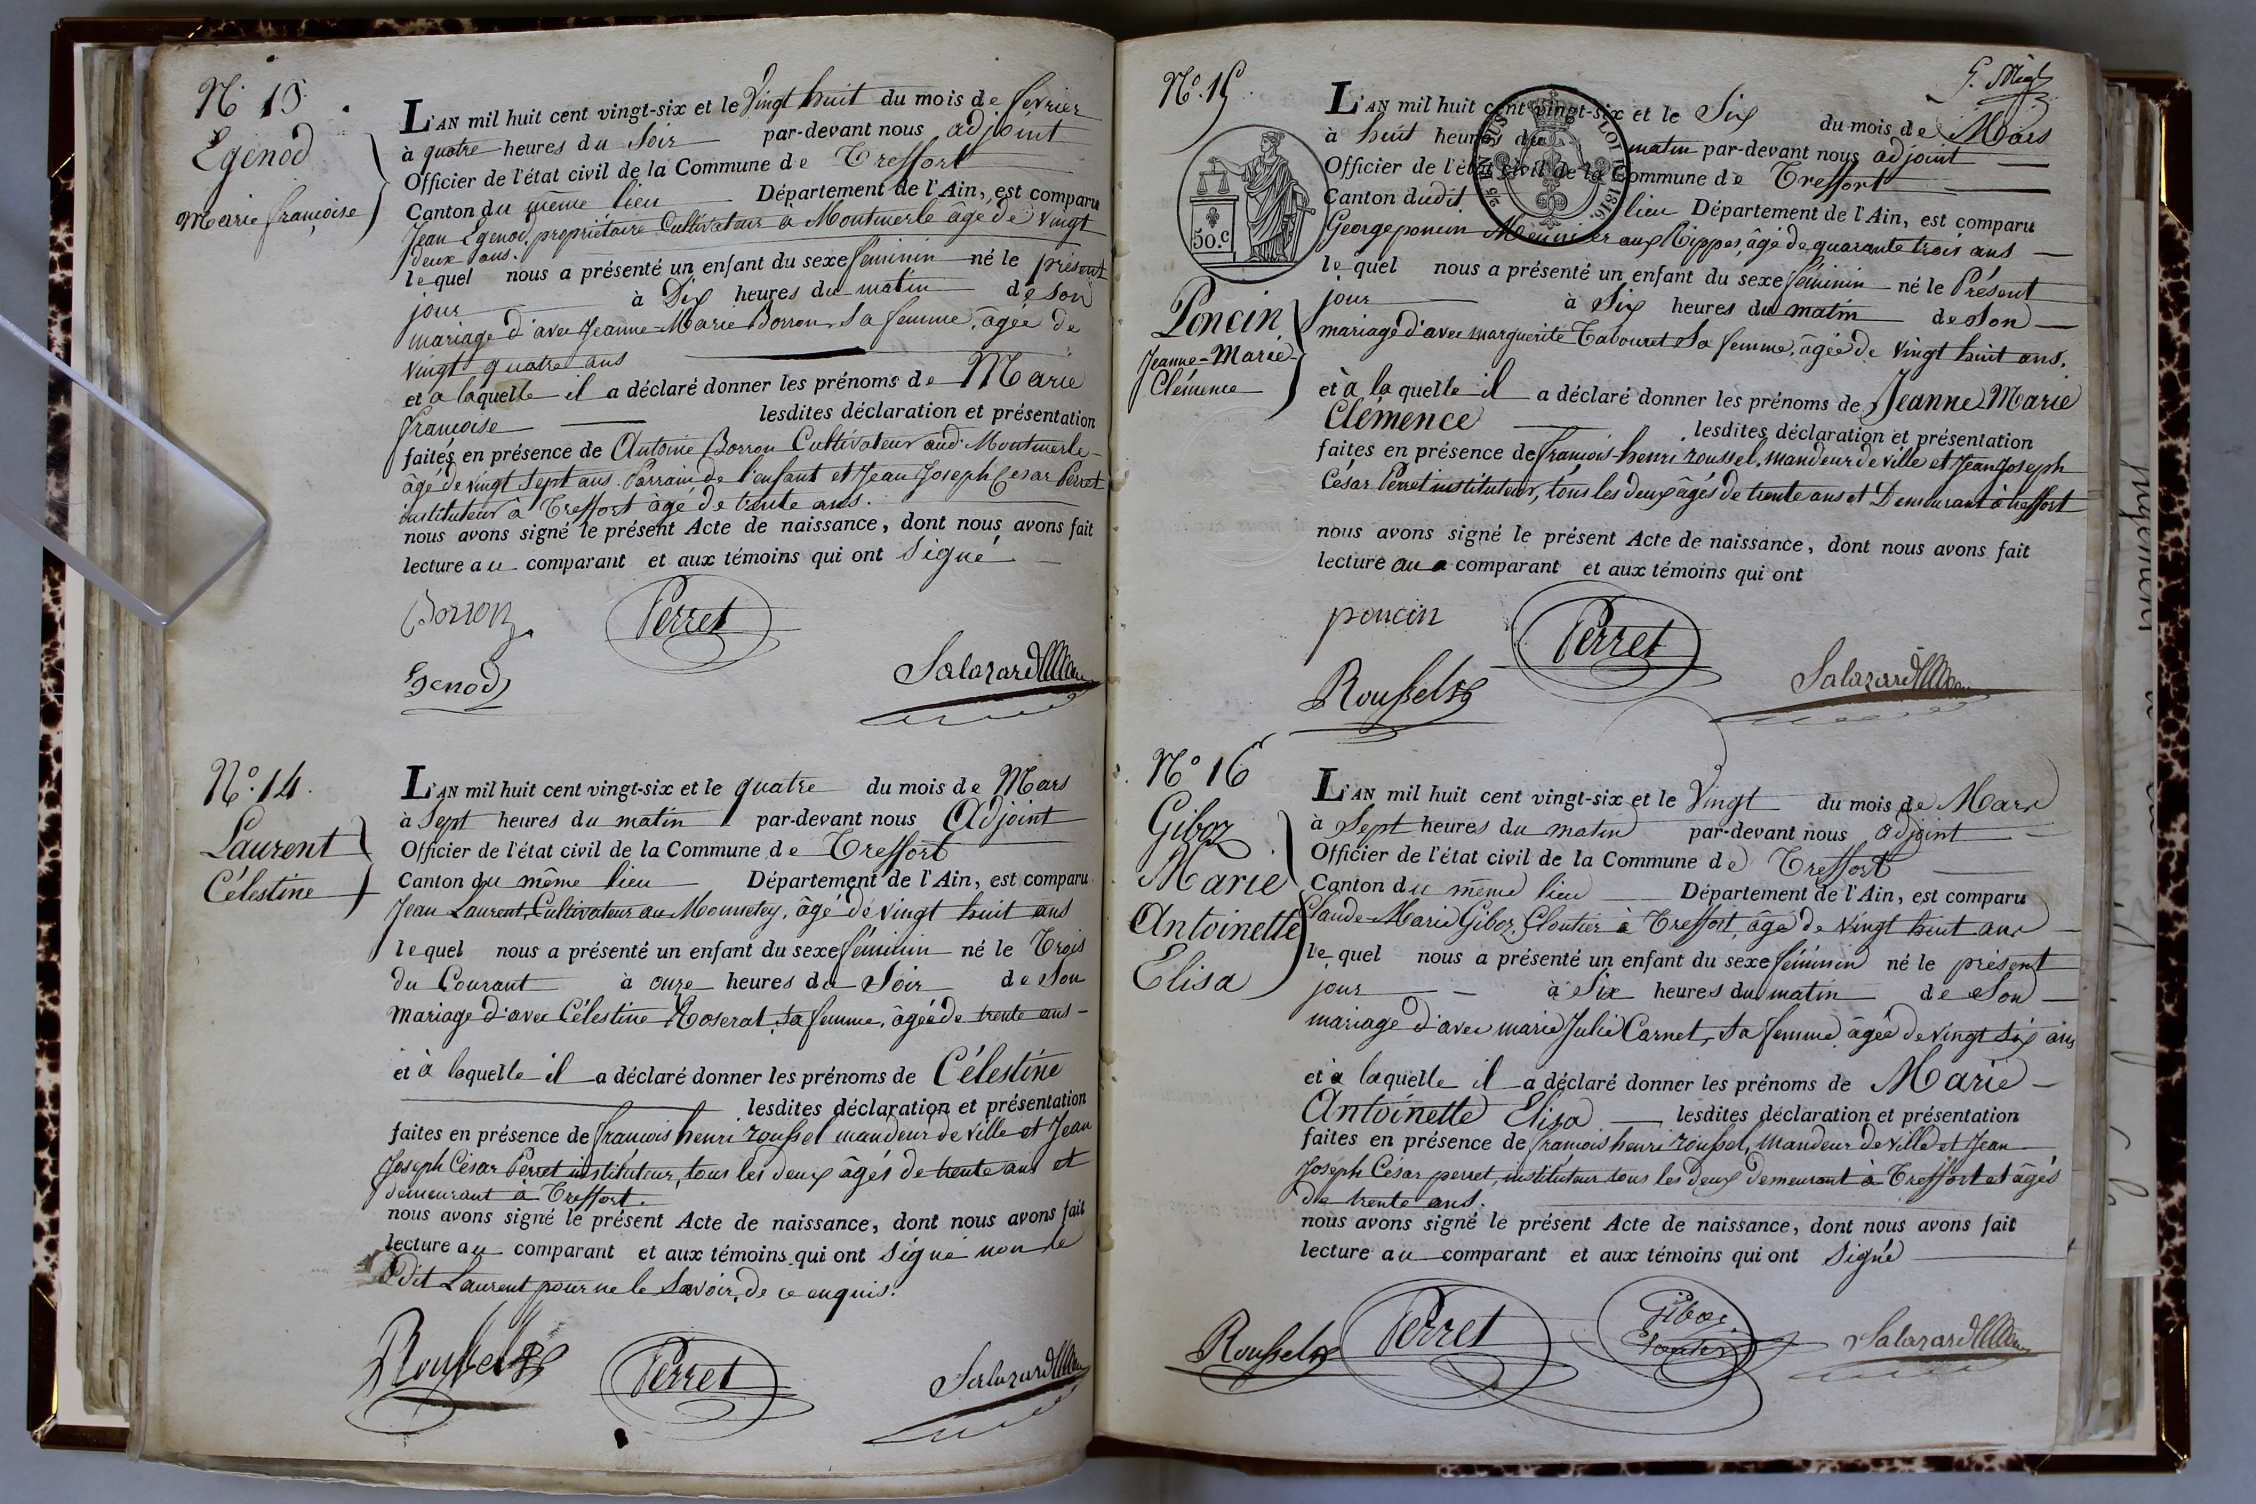 N.° 13.
Egenod
Marie françoise
L'AN mil huit cent vingt-six et le Vingt huit du mois de février
à quatre heures du Soir par-devant nous adjoint
Officier de l'état civil de la Commune de Treffort
Canton du même lieu Département de l'Ain, est comparu
Jean Egenod, propriétaire Cultivateur à Montmerle âgé de vingt
deux ans.
lequel nous a présenté un enfant du sexe féminin né le présent
jour à Dix heures du matin de Son
mariage d'avec Jeanne-Marie Borron, Sa femme, agée de
vingt quatre ans
et a laquelle il a déclaré donner les prénoms de Marie
françoise lesdites déclaration et présentation
faites en présence de Antoine Borron Cultivateur aud. Montmerle
âgé de vingt Sept ans. Parrain de l'enfant et Jean Joseph Cesar Perret
instituteur à Treffort âgé de trente ans.
nous avons signé le présent Acte de naissance, dont nous avons fait
lecture au comparant et aux témoins qui ont Signé
Borron Perret
Egenod Salazard
N.° 14.
Laurent
Célestine
L'AN mil huit cent vingt-six et le quatre du mois de Mars
à Sept heures du matin par-devant nous Adjoint
Officier de l'état civil de la Commune de Treffort
Canton du même lieu Département de l'Ain, est comparu
Jean Laurent, Cultivateur au Monnetey, âgé de vingt huit ans
lequel nous a présenté un enfant du sexe féminin né le Trois
du Courant à onze heures du Soir de Son
mariage d'avec Célestine Roserat, Sa femme, âgée de trente ans
et à laquelle il a déclaré donner les prénoms de Célestine
lesdites déclaration et présentation
faites en présence de françois henri roussel mandeur de ville et Jean
Joseph César Perret instituteur, tous les deux âgés de trente ans et
demeurant à Treffort.
nous avons signé le présent Acte de naissance, dont nous avons fait
lecture au comparant et aux témoins qui ont Signé non le
dit Laurent pour ne le Savoir, de ce enquis.
Roussel Perret Salazard
N.° 15.
50.c
Poncin
Jeanne-Marie
Clémence
L'AN mil huit cent vingt-six et le Six du mois de Mars
à huit heures du matin par-devant nous adjoint
Officier de l'état civil de la Commune de Treffort
Canton dudit lieu Département de l'Ain, est comparu
George poncin Meunier aux Rippes, âgé de quarante trois ans
lequel nous a présenté un enfant du sexe féminin né le Présent
jour à Six heures du matin de Son
mariage d'avec marguerite Tabouret Sa femme, âgée de vingt huit ans.
et à laquelle il a déclaré donner les prénoms de Jeanne Marie
Clémence lesdites déclaration et présentation
faites en présence de françois henri roussel, mandeur de ville et Jean Joseph
César Perret instituteur, tous les deux âgés de trente ans et Demeurant à treffort
nous avons signé le présent Acte de naissance, dont nous avons fait
lecture au comparant et aux témoins qui ont
poncin Perret
Roussel Salazard
N.° 16
Giboz
Marie
Antoinette
Elisa
L'AN mil huit cent vingt-six et le Vingt du mois de Mars
à Sept heures du matin par-devant nous adjoint
Officier de l'état civil de la Commune de Treffort
Canton du même lieu Département de l'Ain, est comparu
Claude-Marie Giboz, Cloutier à Treffort, âgé de vingt huit ans
lequel nous a présenté un enfant du sexe féminin né le présent
jour à Six heures du matin de Son
mariage d'avec marie Julie Carnet, Sa femme âgée de vingt Six ans
et à laquelle il a déclaré donner les prénoms de Marie
Antoinette Elisa lesdites déclaration et présentation
faites en présence de francois henri roussel, mandeur de ville et Jean
Joseph César perret, instituteur tous les deux demeurant à Treffort et âgés
de trente ans.
nous avons signé le présent Acte de naissance, dont nous avons fait
lecture au comparant et aux témoins qui ont Signé
Roussel Perret Giboz Salazard